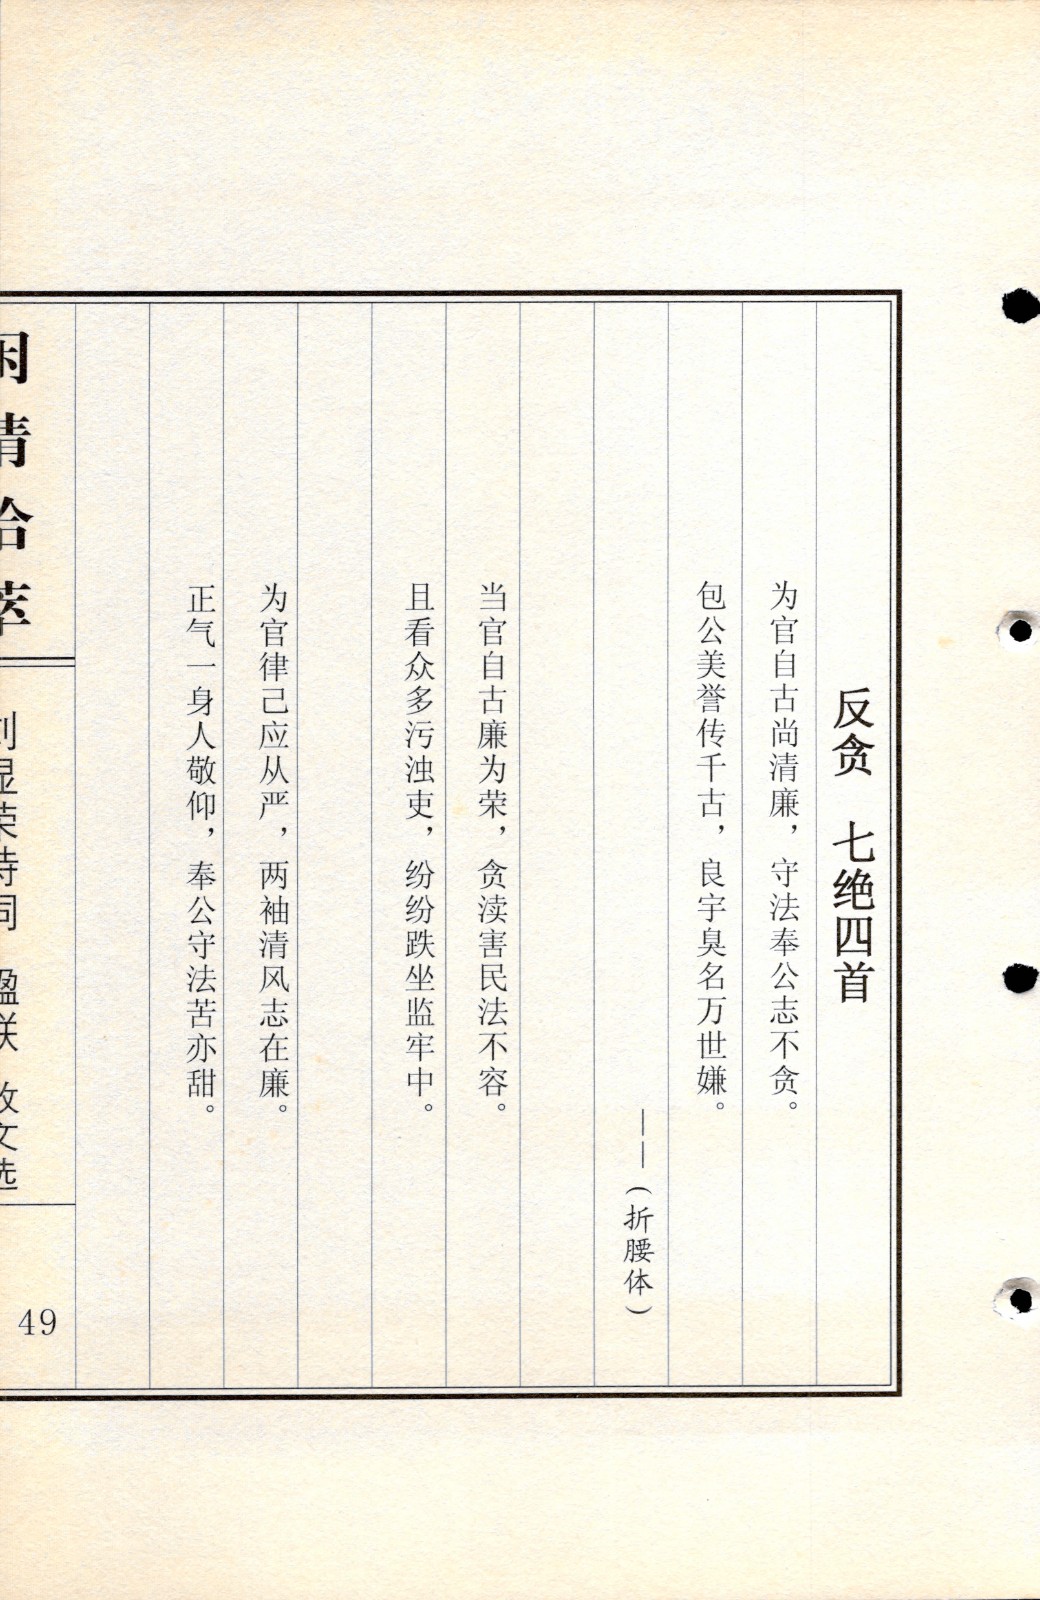 反贪　七绝四首
为官自古尚清廉，守法奉公志不贪。
包公美誉传千古，良宇臭名万世嫌。
——（折腰体）
当官自古廉为荣，贪渎害民法不容。
且看众多污浊吏，纷纷跌坐监牢中。
为官律己应从严，两袖清风志在廉。
正气一身人敬仰，奉公守法苦亦甜。
刘显荣诗词　楹联　散文选
49